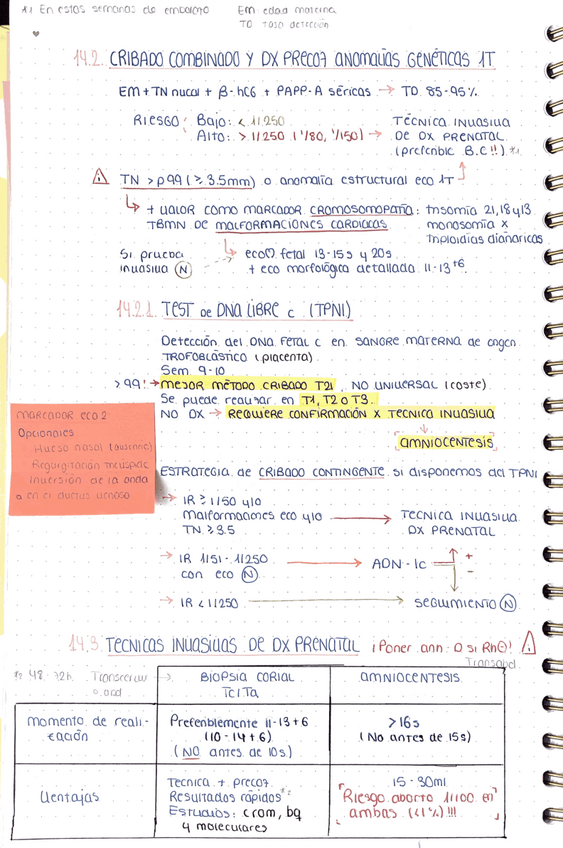 *1 En estas semanas de embarazo
EM edad materna
TD tasa detección
14.2. CRIBADO COMBINADO Y DX PRECOZ ANOMALÍAS GENÉTICAS 1T
EM + TN nucal + β-hCG + PAPP-A séricas → TD 85-95%
RIESGO: Bajo: < 1/250
Alto: > 1/250 (1/80, 1/150) →
TÉCNICA INVASIVA
DE DX PRENATAL
(preferible B.C!!) *1
⚠ TN > p99 (≥ 3.5mm) o anomalía estructural eco 1T
↳ + valor como marcador CROMOSOMOPATÍA: trisomía 21, 18 y 13
TBMN DE MALFORMACIONES CARDIACAS
monosomía x
triploidías diándricas
Si prueba
invasiva (N) ⇢
↳ eco♡ fetal 13-15s y 20s
+ eco morfológica detallada 11-13+6
14.2.1. TEST de DNA LIBRE c (TPNI)
Detección del DNA FETAL C en SANGRE MATERNA de origen
TROFOBLÁSTICO (placenta)
Sem 9-10
>99! → MEJOR MÉTODO CRIBADO T21, NO UNIVERSAL (coste)
Se puede realizar en T1, T2 o T3.
NO DX → REQUIERE CONFIRMACIÓN X TECNICA INVASIVA
↓
AMNIOCENTESIS
Marcador eco 2
Opcionales
Hueso nasal (ausencia)
Regurgitación tricúspide
Inversión de la onda
a en el ductus venoso
ESTRATEGIA de CRIBADO CONTINGENTE si disponemos del TPNI
→ IR ≥ 1/50 y/o
Malformaciones eco y/o → TECNICA INVASIVA
TN ≥ 3.5 DX PRENATAL
→ IR 1/51 - 1/250 → ADN-lc + -
con eco (N)
→ IR < 1/250 → SEGUIMIENTO (N)
14.3. TECNICAS INVASIVAS DE DX PRENATAL ¡Poner anti-D si Rh⊖! ⚠
*2 48-72h.
BIOPSIA CORIAL
TC/TA
Transabd
AMNIOCENTESIS
momento de reali-
zación
Preferiblemente 11-13+6
(10-14+6)
(NO antes de 10s)
>16s
(No antes de 15s)
Ventajas
Técnica + precoz
Resultados rápidos *2
Estudios: crom, bq
y moleculares
15-30ml
Riesgo aborto 1/100 en
ambas (<1%)!!!